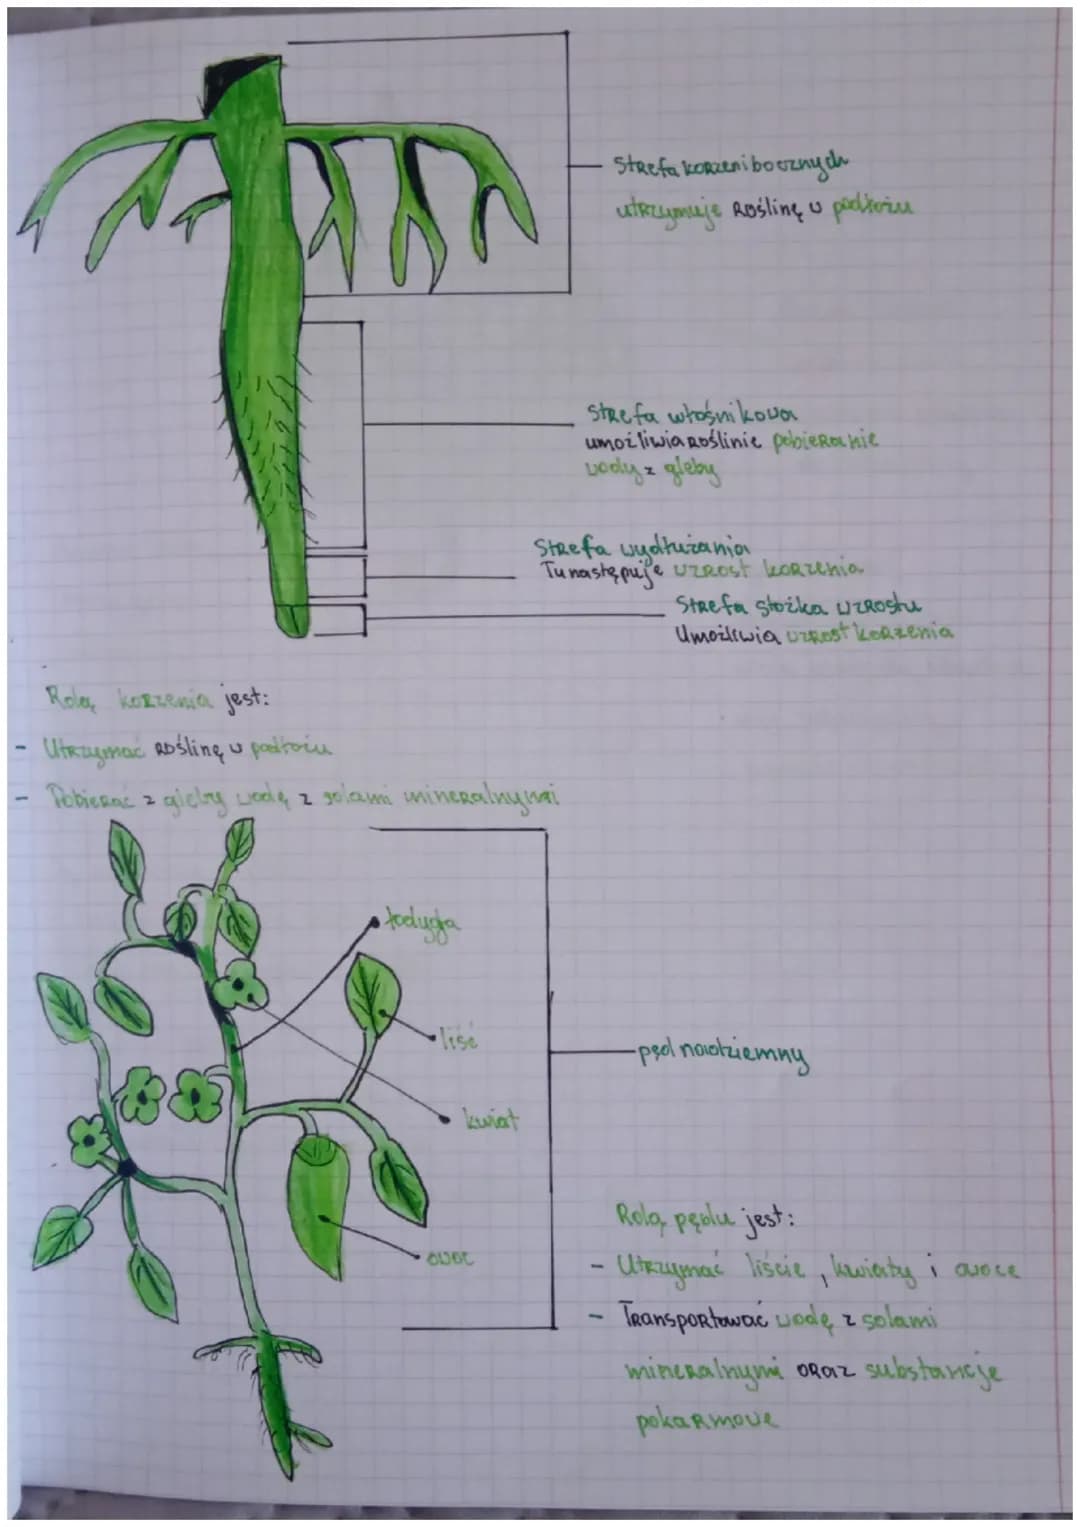 Strefa korzeni bocznych
utrzymuje roślinę w podłożu
Strefa włośnikowa
umożliwia roślinie pobieranie
wody z gleby
Strefa wydłużania
Tu następuje wzrost korzenia
Strefa stożka wzrostu
Umożliwia wzrost korzenia
Rolą korzenia jest:
- Utrzymać roślinę w podłożu
- Pobierać z gleby wodę z solami mineralnymi
łodyga
liść
kwiat
pęd nadziemny
owoc
Rolą pędu jest:
- Utrzymać liście, kwiaty i owoce
- Transportować wodę z solami
mineralnymi oraz substancje
pokarmowe